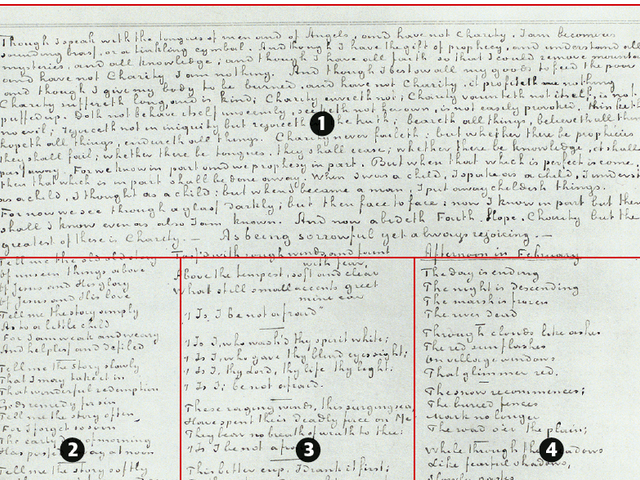 Though I speak with the tongues of men and of Angels, and have not Charity, I am become as
sounding brass, or a tinkling cymbal. And though I have the gift of prophecy, and understand all
mysteries, and all knowledge; and though I have all faith so that I could remove mountains
and have not Charity, I am nothing. And though I bestow all my goods to feed the poor
and though I give my body to be burned, and have not Charity, it profiteth me nothing
Charity suffereth long, and is kind; Charity envieth not; Charity vaunteth not itself, is not
puffed up. Doth not behave itself unseemly, seeketh not her own, is not easily provoked, thinketh
no evil; rejoiceth not in iniquity but rejoiceth the truth; beareth all things, believeth all things
hopeth all things, endureth all things. Charity never faileth, but whether there be prophecies
they shall fail; whether there be tongues, they shall cease; whether there be knowledge, it shall
For we know in part and we prophesy in part. But when that which is perfect is come,
then that which is in part shall be done away. When I was a child, I spake as a child, I
as a child, I thought as a child; but when I became a man, I put away childish things.
For now we see through a glass darkly; but then face to face; now I know in part but then
shall I know even as also I am known. And now abideth Faith, Hope, Charity but the
greatest of these is Charity. — As being sorrowful yet always rejoicing. —
1
Tell me the old old story
Of unseen things above
Of Jesus and His glory
Of Jesus and His love
Tell me the story simply
As to a little child
For I am weak and weary
And helpless and defiled
Tell me the story slowly
That I may take it in
That wonderful redemption
God's remedy for sin
Tell me the story often
For I forget so soon
The early of morning
Has at noon
2
Tell me the story softly
with rough winds and faint
with fear,
Above the tempest soft and clear
What still small accents greet
mine ear
"'T Is I, be not afraid"
'T Is I, who wash'd thy spirit white;
'T Is I, who gave thy blind eyes sight;
'T Is I, thy Lord, thy life thy light.
'T Is I; be not afraid.
These raging winds, this surging sea
Have spent their deadly force on Me
They bear no breath of wrath to thee
'T Is I be not
3
This bitter cup, I drank it first;
Afternoon in February
The day is ending
The night is descending
The marsh is frozen
The river dead
Through clouds like ashes
The red sun flashes
On village windows
That glimmer red.
The snow recommences;
The buried fences
Mark no longer
The road o'er the plain;
While through the
4
Like fearful shadows,
Slowly passes